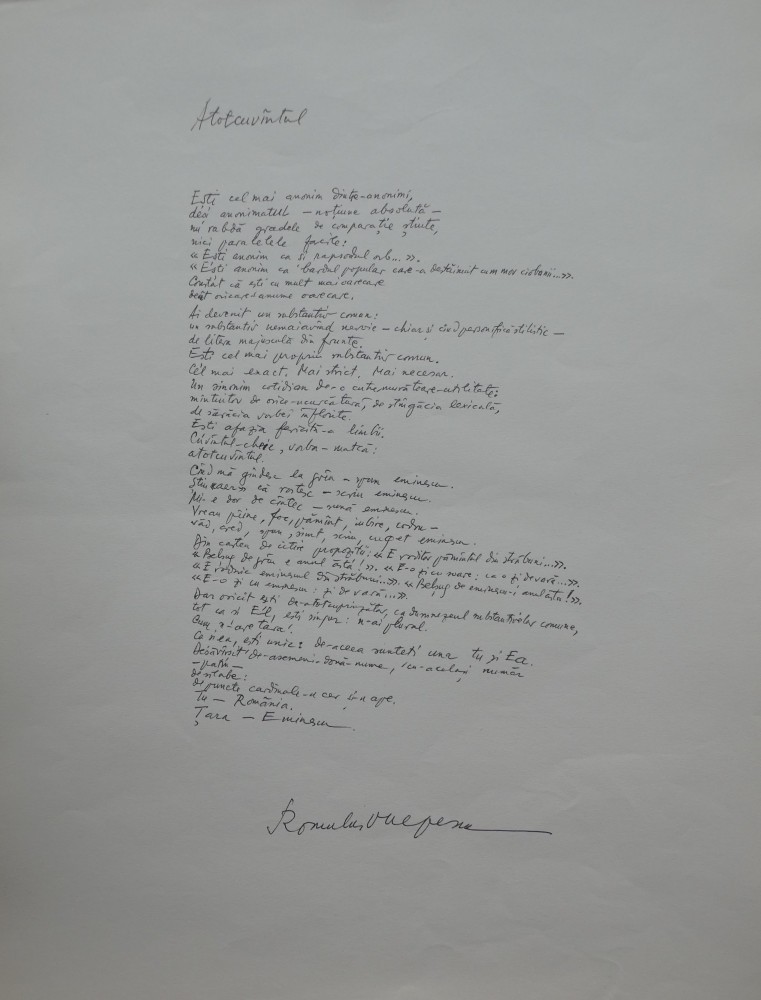 Atotcuvîntul
Ești cel mai anonim dintre-anonimi,
deși anonimatul – noțiune absolută –
nu rabdă gradele de comparație știute,
nici paralelele facile:
«Ești anonim ca și rapsodul orb...».
«Ești anonim ca bardul popular care-a destăinuit cum mor ciobanii...».
Constat că ești cu mult mai oarecare
decît oricare anume oarecare.
Ai devenit un substantiv comun:
un substantiv nemaiavînd nevoie – chiar și cînd personifică stilistic –
de litera majusculă din frunte.
Ești cel mai propriu substantiv comun.
Cel mai exact. Mai strict. Mai necesar.
Un sinonim cotidian de-o cutremurătoare-utilitate:
mîntuitor de orice-ncurcătură, de stîngăcia lexicală,
de sărăcia vorbei înflorite.
Ești afazia fericită-a limbii.
Cuvîntul-cheie, vorba-matcă:
atotcuvîntul.
Cînd mă gîndesc la grîu – spun eminescu.
să rostesc – scriu eminescu.
Mi-e dor de cîntec – sună eminescu.
Vreau pîine, foc, pămînt, iubire, codru –
văd, cred, spun, simt, scriu, cuget eminescu.
Din cartea de citire propoziții: «E roditor pămîntul din străbuni...».
«Belșug de grîu e anul ăsta!». «E-o zi cu soare: ca o zi de vară...».
«E rodnic eminescul din străbuni...». «Belșug de eminescu-i anul ăsta!».
«E-o zi cu eminescu: zi de vară...».
Dar oricît ești de-atotcuprinzător, ca dumnezeul substantivelor comune,
tot ca și El, ești singur: n-ai plural.
Cum n-are țara.
Ca ea, ești unic: de-aceea sunteți una tu și Ea.
Desăvîrșit de-asemeni-două-nume, cu-același număr
– patru –
de silabe:
de puncte cardinale-n cer și-n ape.
Tu – România.
Țara – Eminescu.
Romulus Vulpescu